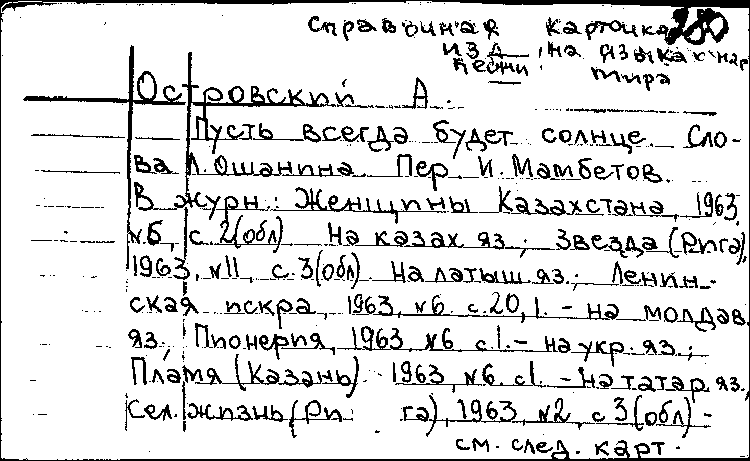 Справочная карточка 280
изд. на языках нар.
песни. мира
Островский А.
Пусть всегда будет солнце. Сло-
ва Л. Ошанина. Пер. И. Мамбетов.
В журн.: Женщины Казахстана, 1963,
№5, с. 2(обл) на казах яз.; Звезда (Рига),
1963, №11, с. 3(обл). на латыш. яз.; Ленин-
ская искра, 1963, №6. с. 20, 1. – на молдав.
яз.; Пионерия, 1963, №6. с. 1. – на укр. яз.;
Пламя (Казань). 1963, №6. с. 1. – на татар. яз.,
Сел. жизнь (Ри га), 1963, №2, с 3(обл) -
см. след. карт.